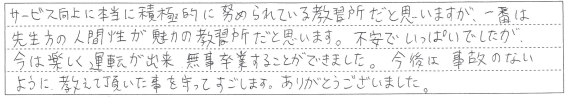 サービス向上に本当に積極的に努められている教習所だと思いますが、一番は
先生方の人間性が魅力の教習所だと思います。不安でいっぱいでしたが、
今は楽しく運転が出来 無事卒業することができました。今後は事故のない
ように教えて頂いた事を守ってすごします。ありがとうございました。